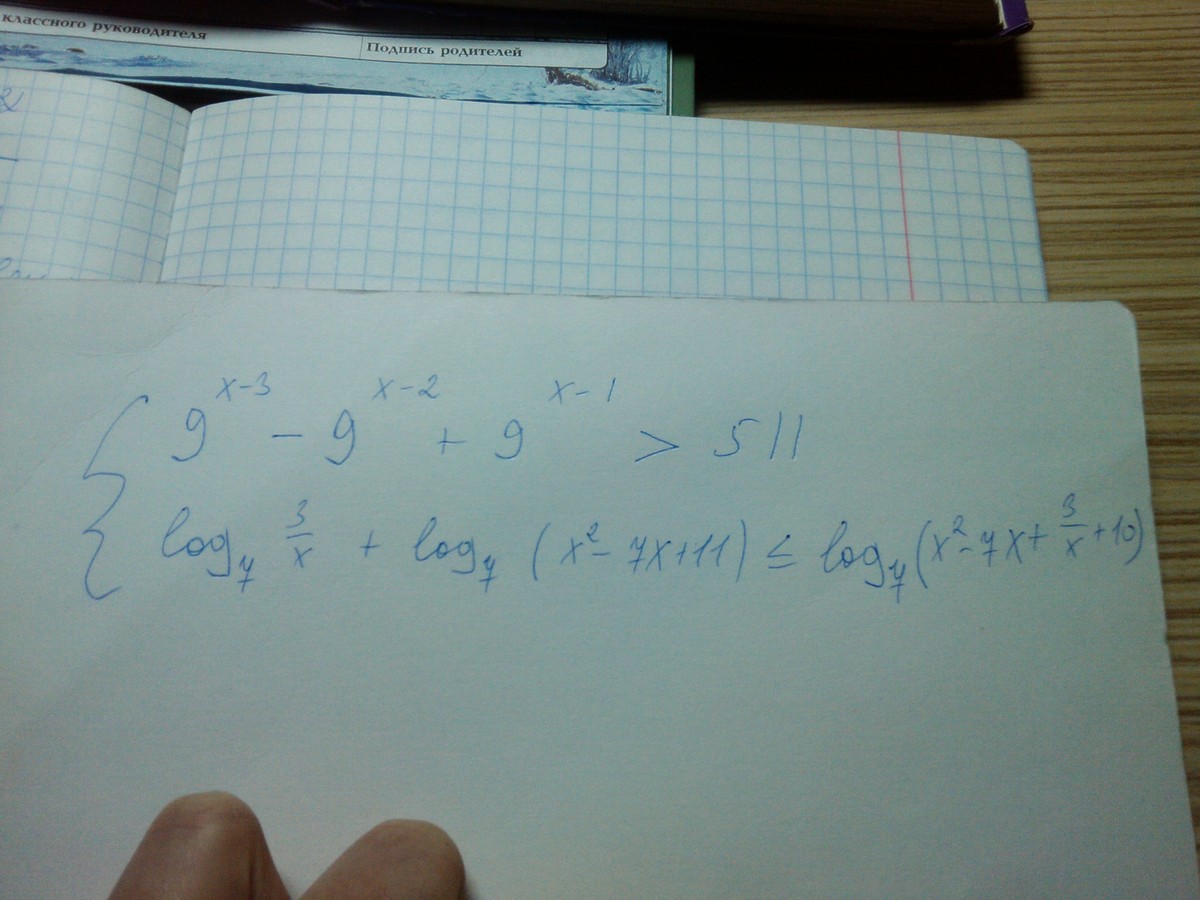 классного руководителя
Подпись родителей
9^(x-3) - 9^(x-2) + 9^(x-1) > 511
log₇ 3/x + log₇ (x² - 7x + 11) ≤ log₇ (x² - 7x + 3/x + 10)